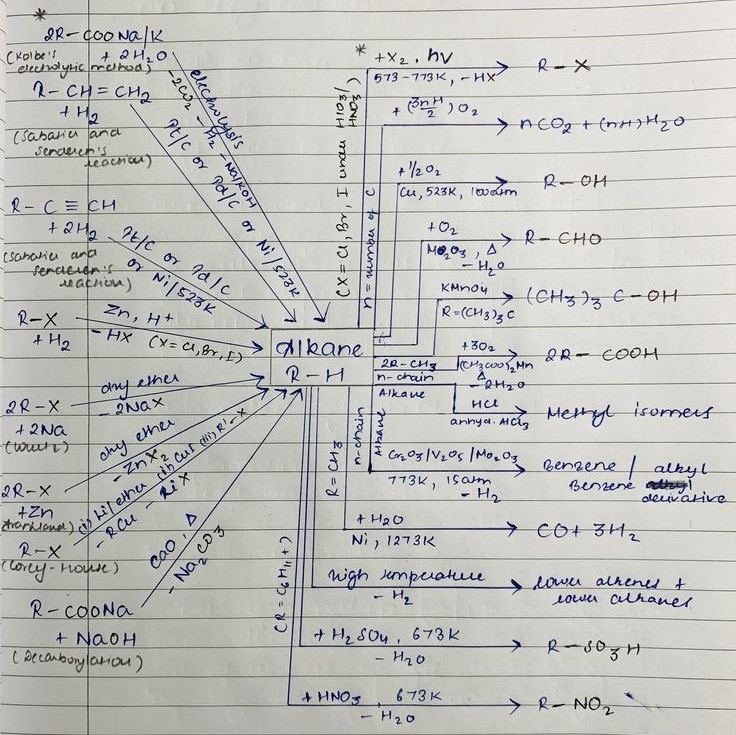 *
2R-COONa/K
(Kolbe's + 2H2O
electrolytic method)
electrolysis
-2CO2 -H2 -NaOH/KOH
R-CH=CH2
+ H2
(Sabatier and
senderen's
reaction)
Pt/C or Pd/C or Ni/523K
R-C≡CH
+ 2H2
(Sabatier and
senderen's
reaction)
Pt/C or Pd/C
or Ni/523K
R-X
+ H2
Zn, H+
-HX (X=Cl, Br, I)
2R-X
+ 2Na
(Wurtz)
dry ether
-2NaX
2R-X
+Zn
(Frankland)
dry ether
-ZnX2
R-X
(Corey-House)
(i) Li/ether (ii) CuI (iii) R'-X
-RCu -LiX
R-COONa
+ NaOH
(Decarboxylation)
CaO, Δ
-Na2CO3
Alkane
R-H
*
+X2, hv
573-773K, -HX
R-X
(X = Cl, Br, I under HIO3/
HNO3)
n = number of C
+ (3n+1/2) O2
nCO2 + (n+1) H2O
+1/2 O2
Cu, 523K, 100atm
R-OH
+O2
Mo2O3, Δ
-H2O
R-CHO
KMnO4
R=(CH3)3C
(CH3)3 C-OH
2R-CH3
+3O2
(CH3COO)2Mn
Δ
-2H2O
2R-COOH
n-chain
Alkane
HCl
anhyd. AlCl3
Methyl isomers
n-chain
Alkane
Cr2O3/V2O5/Mo2O3
773K, 15atm
-H2
Benzene / alkyl
Benzene
derivative
R=CH3
+H2O
Ni, 1273K
CO + 3H2
High temperature
-H2
lower alkenes +
lower alkanes
(R=C6H11+)
+H2SO4, 673K
-H2O
R-SO3H
+HNO3, 673K
-H2O
R-NO2